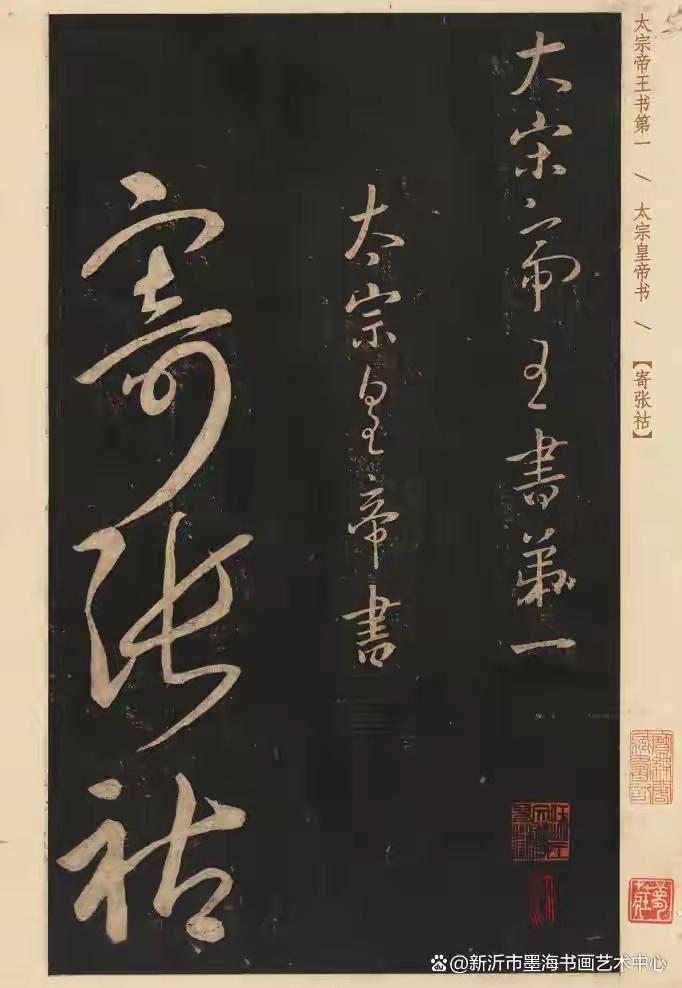 太宗帝王书第一 \ 太宗皇帝书 \ 【寄张祜】
大宋帝王書第一
太宗皇帝書
寄張祜
@新沂市墨海书画艺术中心